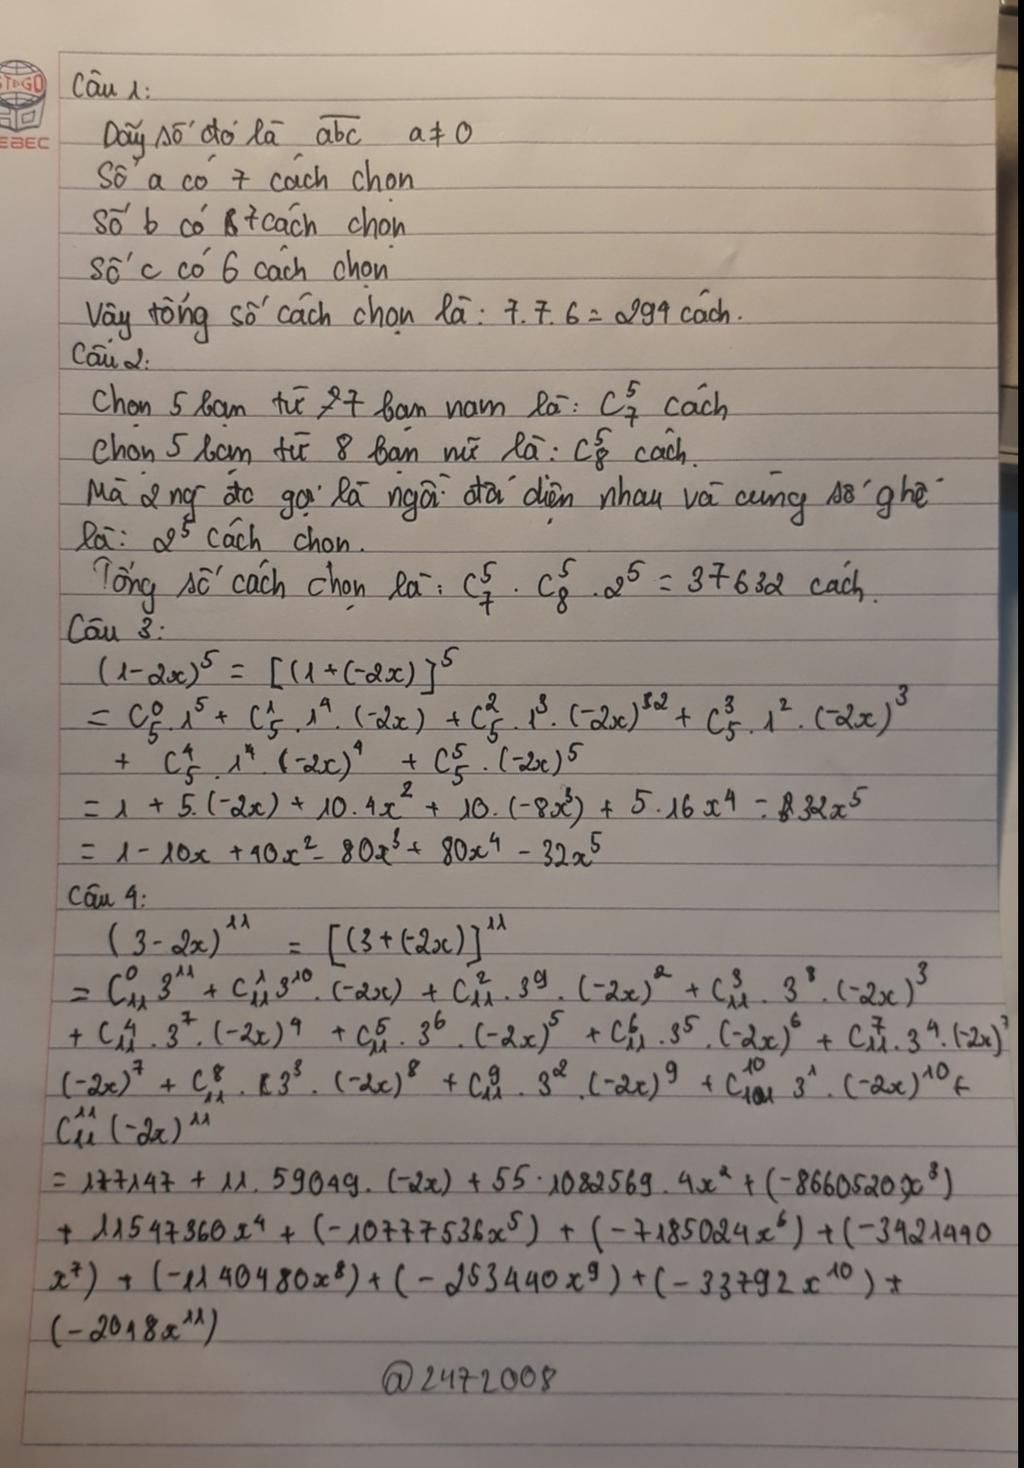 STAGO
EBEC
Câu 1:
Dãy số đó là abc a ≠ 0
Số a có 7 cách chọn
Số b có 7 cách chọn
Số c có 6 cách chọn
Vậy tổng số cách chọn là: 7.7.6 = 294 cách.
Câu 2:
Chọn 5 bạn từ 7 bạn nam là: C⁵₇ cách
Chọn 5 bạn từ 8 bạn nữ là: C⁵₈ cách.
Mà 2 ng đc gọi là ngồi đối diện nhau và cùng số ghế
là: 2⁵ cách chọn.
Tổng số cách chọn là: C⁵₇ . C⁵₈ . 2⁵ = 37632 cách.
Câu 3:
(1-2x)⁵ = [(1+(-2x)]⁵
= C⁰₅.1⁵ + C¹₅.1⁴.(-2x) + C²₅.1³.(-2x)² + C³₅.1².(-2x)³
+ C⁴₅.1⁴.(-2x)⁴ + C⁵₅.(-2x)⁵
= 1 + 5.(-2x) + 10.4x² + 10.(-8x³) + 5.16x⁴ - 32x⁵
= 1 - 10x + 40x² - 80x³ + 80x⁴ - 32x⁵
Câu 4:
(3-2x)¹¹ = [(3+(-2x)]¹¹
= C⁰₁₁ 3¹¹ + C¹₁₁ 3¹⁰.(-2x) + C²₁₁.3⁹.(-2x)² + C³₁₁.3⁸.(-2x)³
+ C⁴₁₁.3⁷.(-2x)⁴ + C⁵₁₁.3⁶.(-2x)⁵ + C⁶₁₁.3⁵.(-2x)⁶ + C⁷₁₁.3⁴.(-2x)⁷
(-2x)⁷ + C⁸₁₁.3³.(-2x)⁸ + C⁹₁₁.3².(-2x)⁹ + C¹⁰₁₁ 3¹.(-2x)¹⁰ +
C¹¹₁₁(-2x)¹¹
= 177147 + 11.59049.(-2x) + 55.1082569.4x² + (-8660520x³)
+ 11547360x⁴ + (-10777536x⁵) + (-7185024x⁶) + (-3421440
x⁷) + (-1140480x⁸) + (-253440x⁹) + (-33792x¹⁰) +
(-2048x¹¹)
@2472008